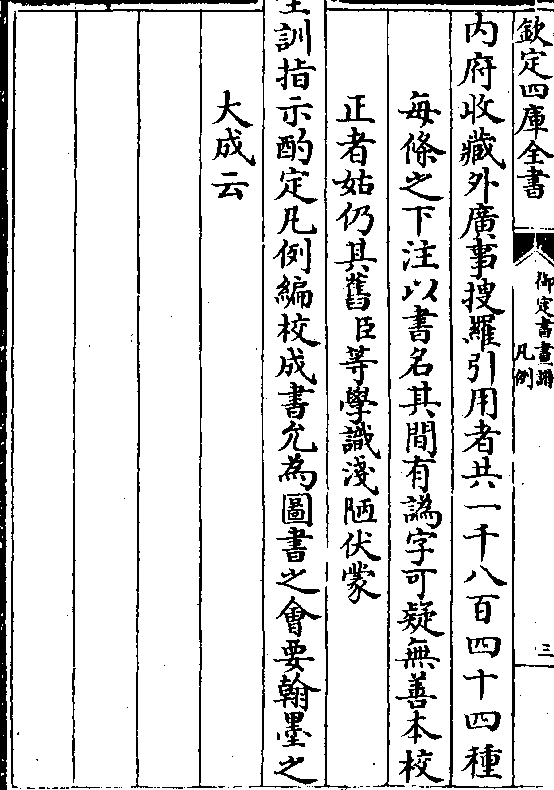 欽定四庫全書
御定書畫譜
凡例
三
內府收藏外廣事搜羅引用者共一千八百四十四種
每條之下注以書名其間有譌字可疑無善本校
正者姑仍其舊臣等學識淺陋伏蒙
聖訓指示酌定凡例編校成書允為圖書之會要翰墨之
大成云